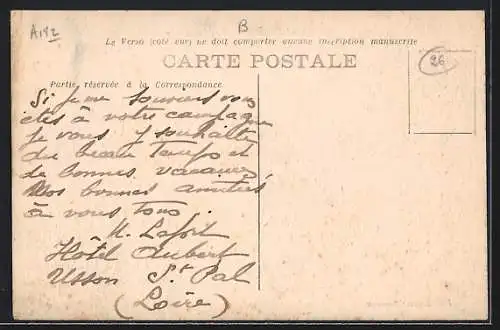 A142
B
Le Verso (côté vue) ne doit comporter aucune inscription manuscrite
CARTE POSTALE
26
Partie réservée à la Correspondance
Si je me souviens vous
êtes à votre campagne
je vous y souhaite
du beau temps et
de bonnes vacances,
Nos bonnes amitiés
à vous tous.
Hôtel Aubert
Usson St Pal
(Loire)